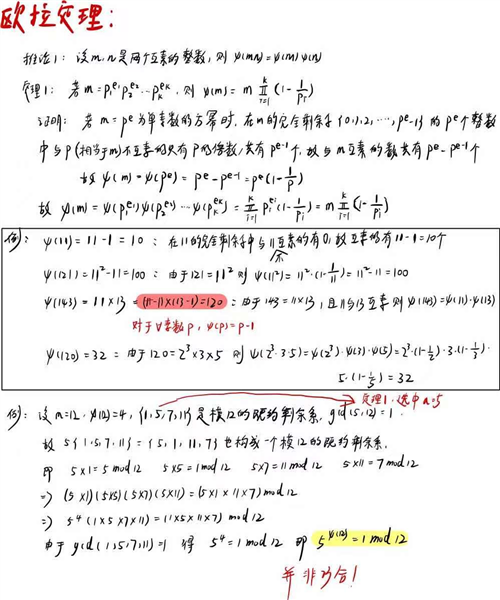 欧拉定理:
推论1: 设m,n是两个互素的整数,则 ψ(mn)=ψ(m)ψ(n)
定理1: 若m=p₁^e₁p₂^e₂…pₖ^eₖ, 则 ψ(m)= m ∏_{i=1}^{k} (1-1/pᵢ)
证明: 若 m=p^e为单素数的方幂时, 在m的完全剩余系 {0,1,2,…,p^e-1} 的 p^e个整数
中与p(相当于m)不互素的只有p的倍数,共有p^{e-1}个,故与m互素的数共有p^e-p^{e-1}个
故 ψ(m)=ψ(p^e)= p^e-p^{e-1}=p^e(1-1/p)
故 ψ(m)=ψ(p₁^e₁)ψ(p₂^e₂)…ψ(pₖ^eₖ)=∏_{i=1}^{k} pᵢ^eᵢ(1-1/pᵢ)=m∏_{i=1}^{k}(1-1/pᵢ)
例: ψ(11)=11-1=10 : 在11的完全剩余系中与11不互素的有0,故互素的有11-1=10个
ψ(121)=11²-11=100 : 由于121=11² 则 ψ(11²)=11²·(1-1/11)=11²-11=100
ψ(143)=11×13=(11-1)×(13-1)=120 : 由于143=11×13,且11与13互素 则 ψ(143)=ψ(11)·ψ(13)
对于∀素数p, ψ(p)=p-1
ψ(120)=32 : 由于120=2³×3×5 则 ψ(2³·3·5)=ψ(2³)·ψ(3)·ψ(5)=2³·(1-1/2)·3·(1-1/3)·
5·(1-1/5)=32
定理1,选中a=5
例: 设m=12, ψ(12)=4, {1,5,7,11}是模12的既约剩余系, gcd(5,12)=1
故 5{1,5,7,11}={5,1,11,7}也构成一个模12的既约剩余系.
即 5×1=5 mod 12 5×5=1 mod 12 5×7=11 mod 12 5×11=7 mod 12
=> (5×1)(5×5)(5×7)(5×11)=(5×1×11×7) mod 12
=> 5⁴(1×5×7×11)=(1×5×11×7) mod 12
由于 gcd(1,5,7,11)=1 得 5⁴=1 mod 12 即 5^ψ(12)=1 mod 12
并非巧合!